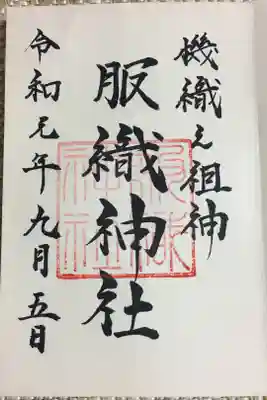 機織之祖神
服織神社
令和元年九月五日